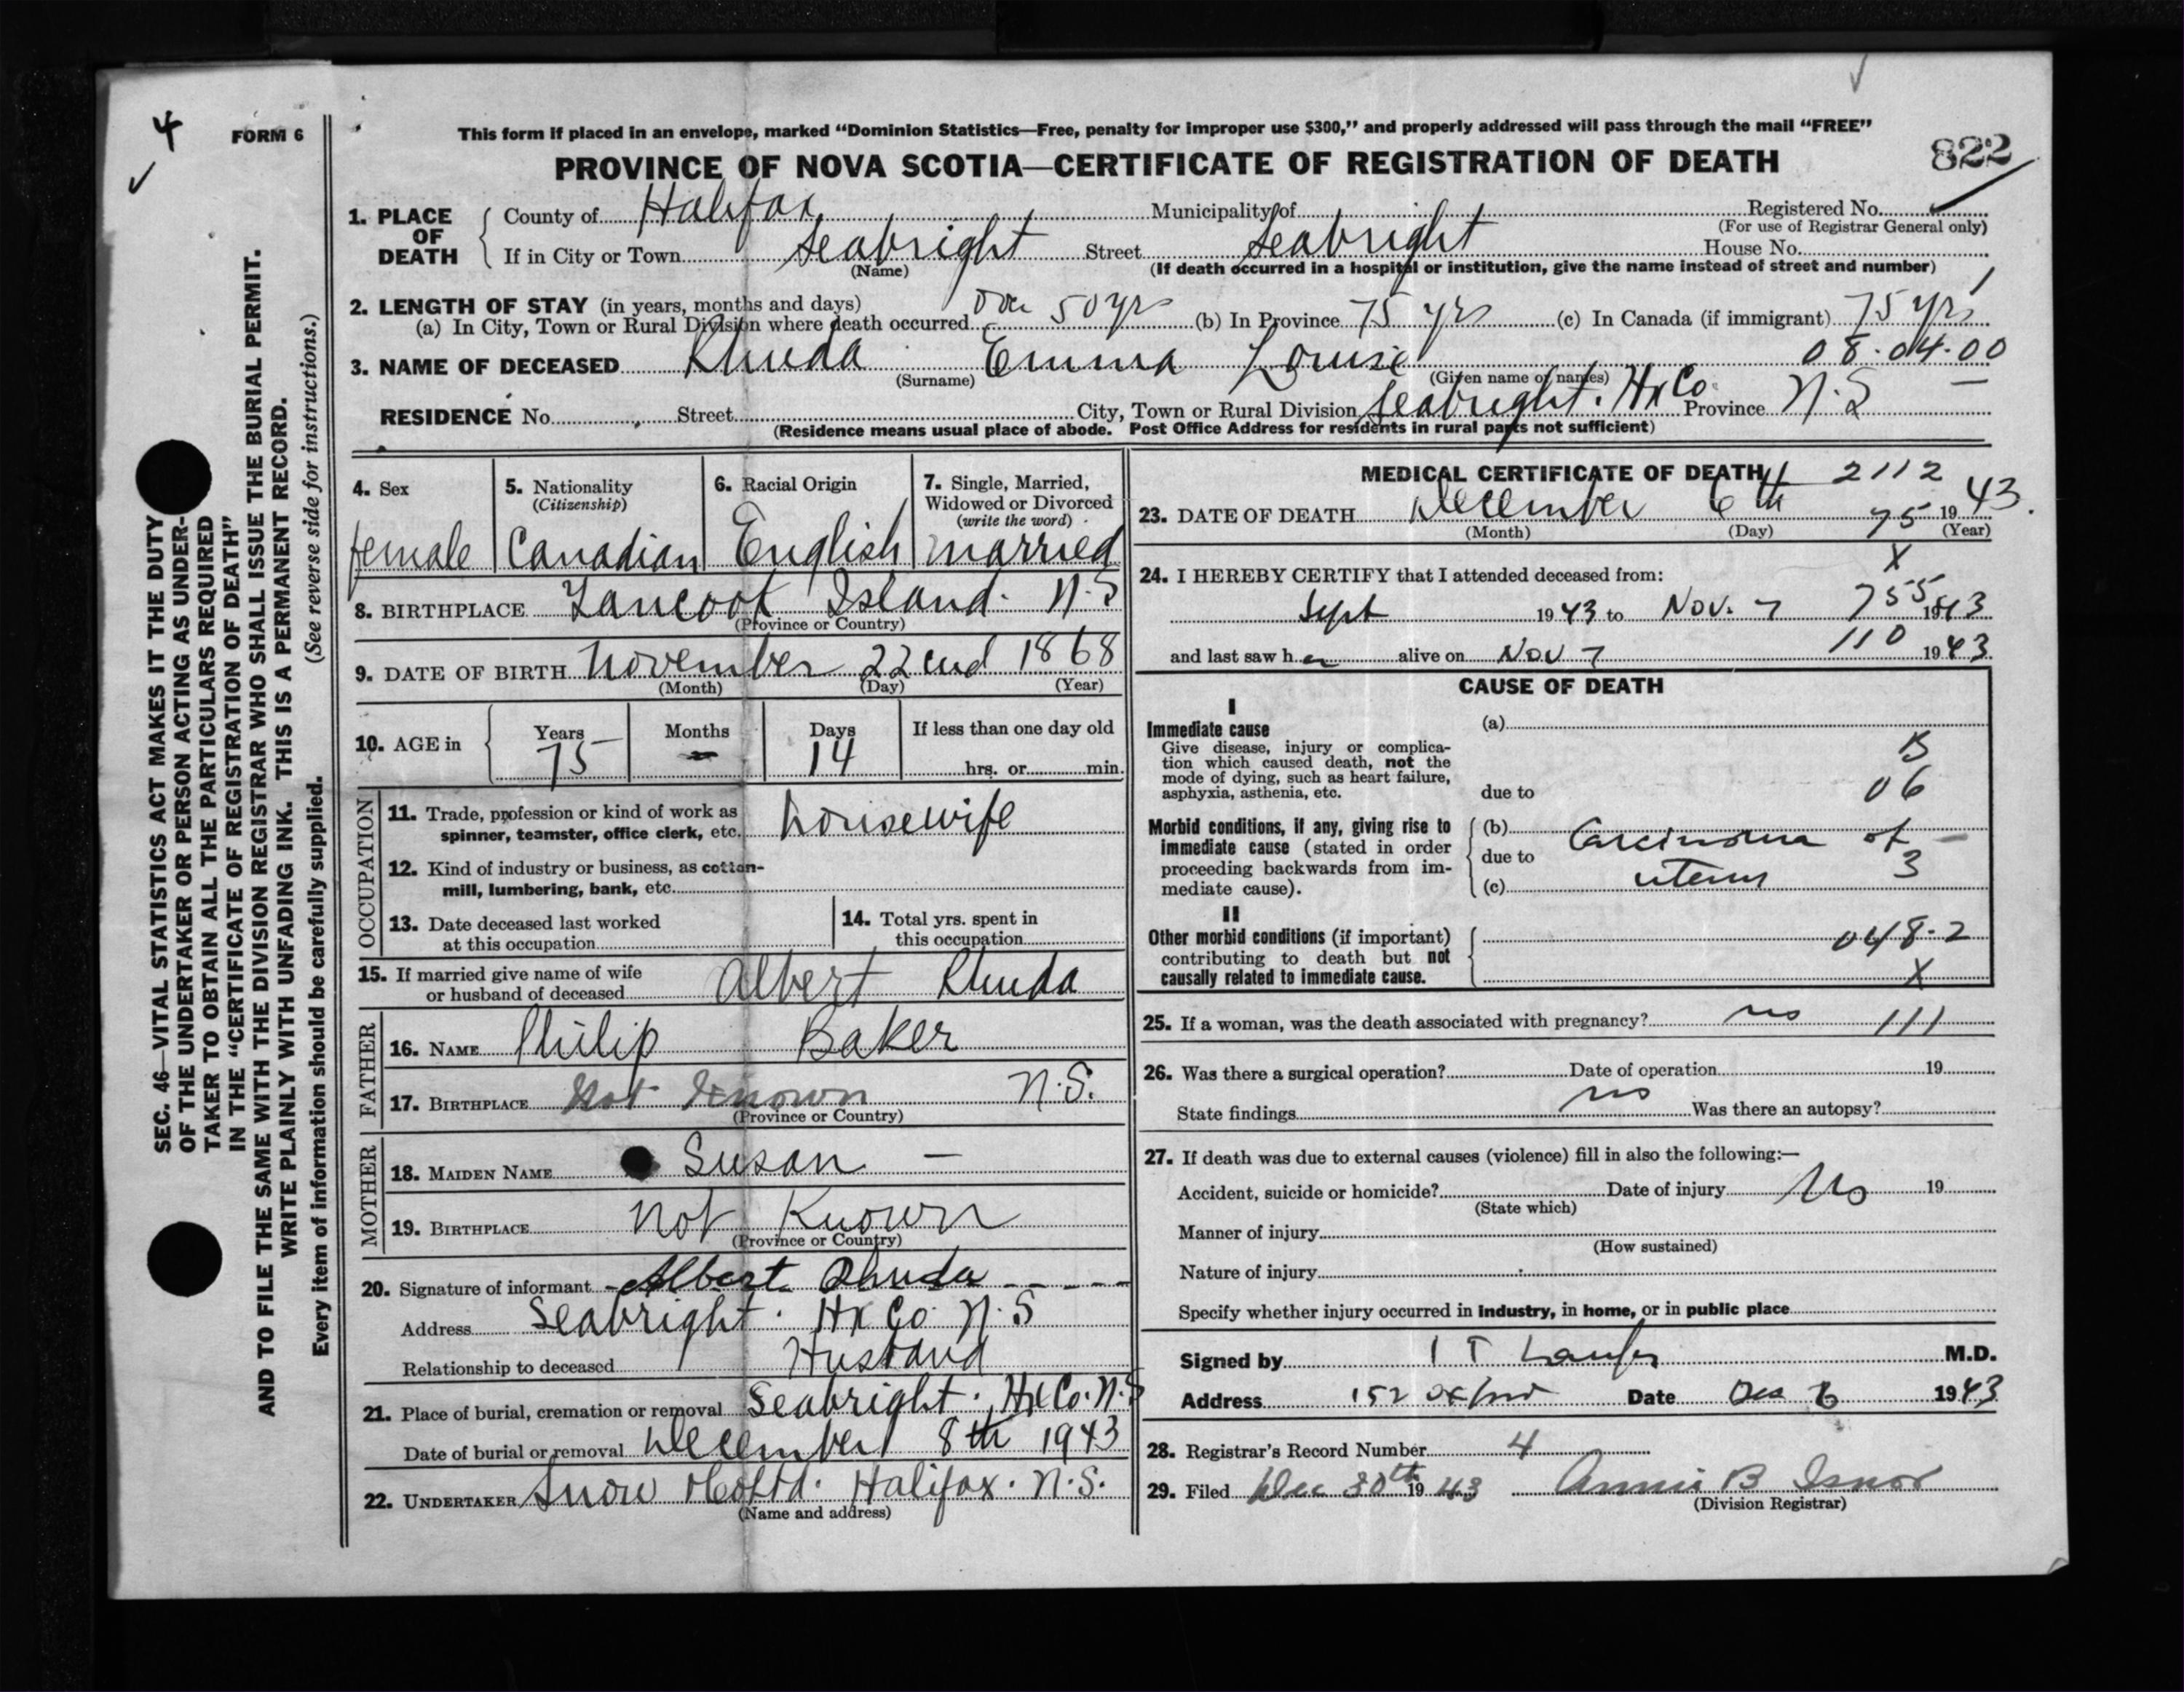 4
FORM 6
This form if placed in an envelope, marked “Dominion Statistics—Free, penalty for improper use $300,” and properly addressed will pass through the mail “FREE”
PROVINCE OF NOVA SCOTIA—CERTIFICATE OF REGISTRATION OF DEATH
822
1. PLACE OF DEATH
County of Halifax Municipality of Registered No.
(For use of Registrar General only)
If in City or Town Seabright Street Seabright House No.
(Name) (If death occurred in a hospital or institution, give the name instead of street and number)
2. LENGTH OF STAY (in years, months and days)
(a) In City, Town or Rural Division where death occurred Over 50 yrs (b) In Province 75 yrs (c) In Canada (if immigrant) 75 yrs
3. NAME OF DECEASED Rhuda Emma Louise 08.04.00
(Surname) (Given name or names)
RESIDENCE No. Street City, Town or Rural Division Seabright. Hx Co. Province N.S
(Residence means usual place of abode. Post Office Address for residents in rural parts not sufficient)
SEC. 46—VITAL STATISTICS ACT MAKES IT THE DUTY
OF THE UNDERTAKER OR PERSON ACTING AS UNDER-
TAKER TO OBTAIN ALL THE PARTICULARS REQUIRED
IN THE “CERTIFICATE OF REGISTRATION OF DEATH”
AND TO FILE THE SAME WITH THE DIVISION REGISTRAR WHO SHALL ISSUE THE BURIAL PERMIT.
WRITE PLAINLY WITH UNFADING INK. THIS IS A PERMANENT RECORD.
Every item of information should be carefully supplied. (See reverse side for instructions.)
4. Sex
female
5. Nationality
(Citizenship)
Canadian
6. Racial Origin
English
7. Single, Married,
Widowed or Divorced
(write the word)
married
8. BIRTHPLACE Tancook Island. N.S
(Province or Country)
9. DATE OF BIRTH November 22end 1868
(Month) (Day) (Year)
10. AGE in
Years Months Days If less than one day old
75 – 14 hrs. or min.
OCCUPATION
11. Trade, profession or kind of work as
spinner, teamster, office clerk, etc. housewife
12. Kind of industry or business, as cotton-
mill, lumbering, bank, etc.
13. Date deceased last worked
at this occupation
14. Total yrs. spent in
this occupation
15. If married give name of wife
or husband of deceased Albert Rhuda
FATHER
16. NAME Philip Baker
17. BIRTHPLACE Not Known N.S.
(Province or Country)
MOTHER
18. MAIDEN NAME Susan –
19. BIRTHPLACE Not Known
(Province or Country)
20. Signature of informant Albert Rhuda
Address Seabright. Hx Co. N.S
Relationship to deceased Husband
21. Place of burial, cremation or removal Seabright. Hx Co. N.S
Date of burial or removal December 8th 1943
22. UNDERTAKER Snow & Co Ltd. Halifax. N.S.
(Name and address)
MEDICAL CERTIFICATE OF DEATH 2112
23. DATE OF DEATH December 6th 1943.
75
(Month) (Day) (Year)
X
24. I HEREBY CERTIFY that I attended deceased from:
Sept 1943 to Nov. 7 1943
755
and last saw her alive on Nov 7 1943
110
CAUSE OF DEATH
I
Immediate cause
Give disease, injury or complica-
tion which caused death, not the
mode of dying, such as heart failure,
asphyxia, asthenia, etc.
(a)
B
due to
06
Morbid conditions, if any, giving rise to
immediate cause (stated in order
proceeding backwards from im-
mediate cause).
(b) Carcinoma of
due to
(c) uterus
3
II
Other morbid conditions (if important)
contributing to death but not
causally related to immediate cause.
048-2
X
25. If a woman, was the death associated with pregnancy? no 111
26. Was there a surgical operation? Date of operation 19
State findings no Was there an autopsy?
27. If death was due to external causes (violence) fill in also the following:—
Accident, suicide or homicide? Date of injury No 19
(State which)
Manner of injury
(How sustained)
Nature of injury
Specify whether injury occurred in industry, in home, or in public place
Signed by I T M.D.
Address 152 Oxford Date Dec 1943
28. Registrar's Record Number 4
29. Filed Dec 30th 1943 Annie B Isnor
(Division Registrar)